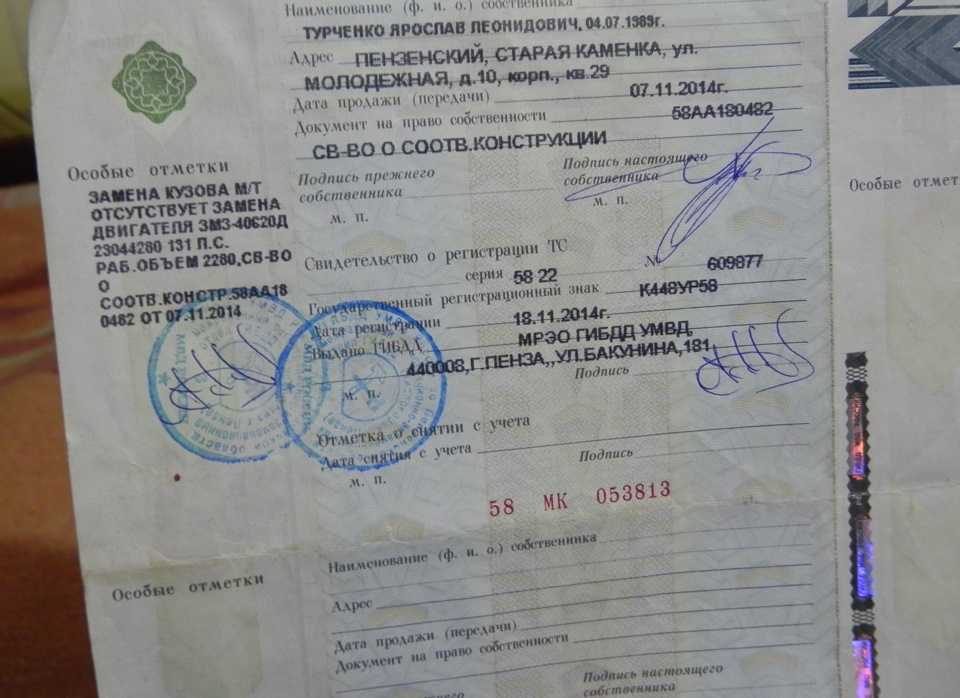 Наименование (ф. и. о.) собственника
ТУРЧЕНКО ЯРОСЛАВ ЛЕОНИДОВИЧ, 04.07.1989г.
Адрес ПЕНЗЕНСКИЙ, СТАРАЯ КАМЕНКА, ул.
МОЛОДЕЖНАЯ, д.10, корп., кв.29
Дата продажи (передачи) 07.11.2014г.
Документ на право собственности 58АА180482
СВ-ВО О СООТВ.КОНСТРУКЦИИ
Подпись прежнего собственника
Подпись настоящего собственника
м. п.
м. п.
Особые отметки
ЗАМЕНА КУЗОВА М/Т
ОТСУТСТВУЕТ ЗАМЕНА
ДВИГАТЕЛЯ ЗМЗ-40620Д
23044280 131 Л.С.
РАБ.ОБЪЕМ 2280,СВ-ВО
О
СООТВ.КОНСТР.58АА18
0482 ОТ 07.11.2014
Свидетельство о регистрации ТС
серия 58 22 № 609877
Государственный регистрационный знак К448УР58
Дата регистрации 18.11.2014г.
Выдано ГИБДД МРЭО ГИБДД УМВД,
440008,Г.ПЕНЗА,,УЛ.БАКУНИНА,181
Подпись
м. п.
Отметка о снятии с учета
Дата снятия с учета
Подпись
м. п.
58 МК 053813
Особые отмет
Наименование (ф. и. о.) собственника
Особые отметки
Адрес
Дата продажи (передачи)
Документ на право собственности
Подпись настоящего
собственника